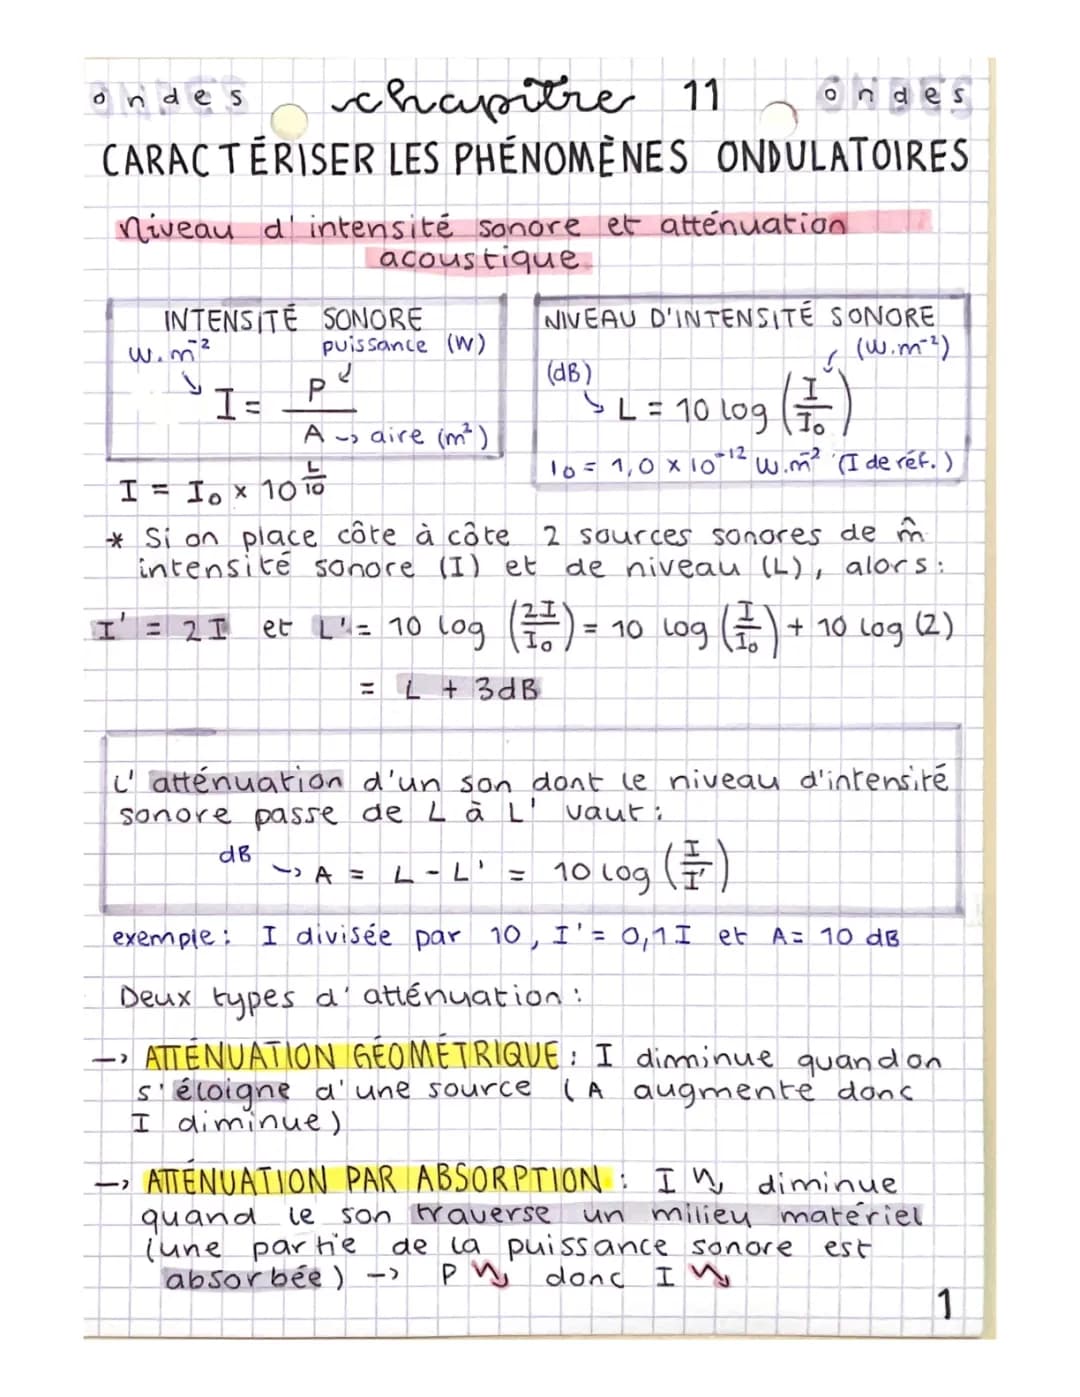 ondes chapitre 11 ondes
CARACTÉRISER LES PHÉNOMÈNES ONDULATOIRES
Niveau d'intensité sonore et atténuation
acoustique
INTENSITÉ SONORE
W.m⁻² puissance (W)
I = P / A -> aire (m²)
NIVEAU D'INTENSITÉ SONORE
(W.m⁻²)
(dB)
L = 10 log (I/I₀)
I₀ = 1,0 × 10⁻¹² W.m⁻² (I de réf.)
I = I₀ × 10^(L/10)
* Si on place côte à côte 2 sources sonores de m̂
intensité sonore (I) et de niveau (L), alors :
I' = 2I et L' = 10 log (2I/I₀) = 10 log (I/I₀) + 10 log (2)
= L + 3dB
L'atténuation d'un son dont le niveau d'intensité
sonore passe de L à L' vaut :
dB -> A = L - L' = 10 log (I/I')
exemple : I divisée par 10, I' = 0,1 I et A = 10 dB
Deux types d'atténuation :
-> ATTÉNUATION GÉOMÉTRIQUE : I diminue quand on
s'éloigne d'une source (A augmente donc
I diminue)
-> ATTÉNUATION PAR ABSORPTION : I ↘ diminue
quand le son traverse un milieu matériel
(une partie de la puissance sonore est
absorbée) -> P ↘ donc I ↘
1